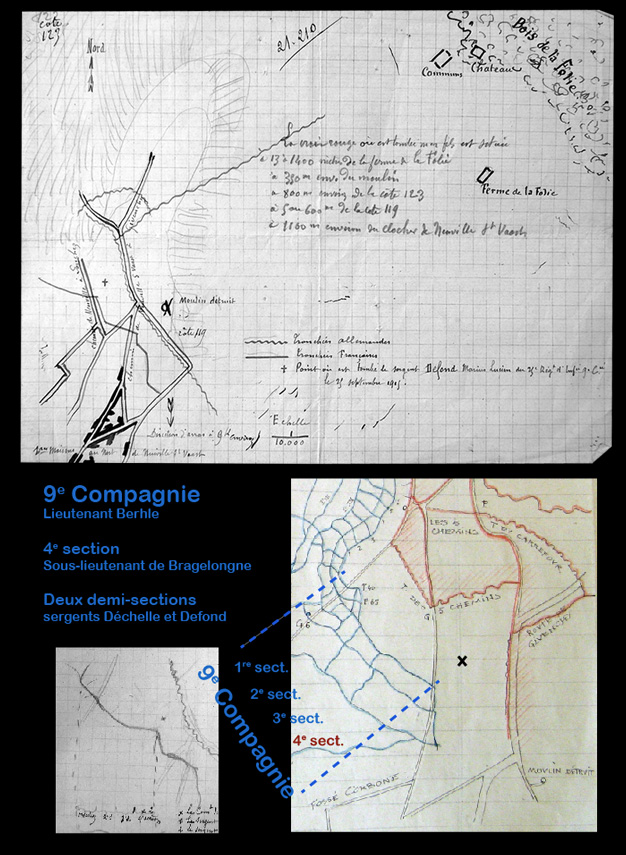 côte
123
Nord
21.210
Bois de la Folie
Château
Communs
Ferme de la Folie
La croix rouge où est tombé mon fils est située
à 13 à 1400 mètres de la ferme de la Folie
à 350 m env. du moulin
à 800 m environ de la côte 123
à 5 ou 600 m de la côte 119
à 1160 m environ du clocher de Neuville St Vaast
Moulin détruit
côte 119
chemin de Neuville à Souchez
tranchées allemandes
tranchées françaises
† Point où est tombé le sergent Defond Marius Lucien du
le 25 septembre 1915.
Echelle
1
10.000
Direction d'arras à
maisons au Nord de Neuville St Vaast
9e Compagnie
Lieutenant Berhle
4e section
Sous-lieutenant de Bragelongne
Deux demi-sections
sergents Déchelle et Defond
9e Compagnie
1re sect.
2e sect.
3e sect.
4e sect.
LES 5
CHEMINS
T. DU CARREFOUR
T. DES 5 CHEMINS
ROUTE
GIVENCHY
MOULIN DÉTRUIT